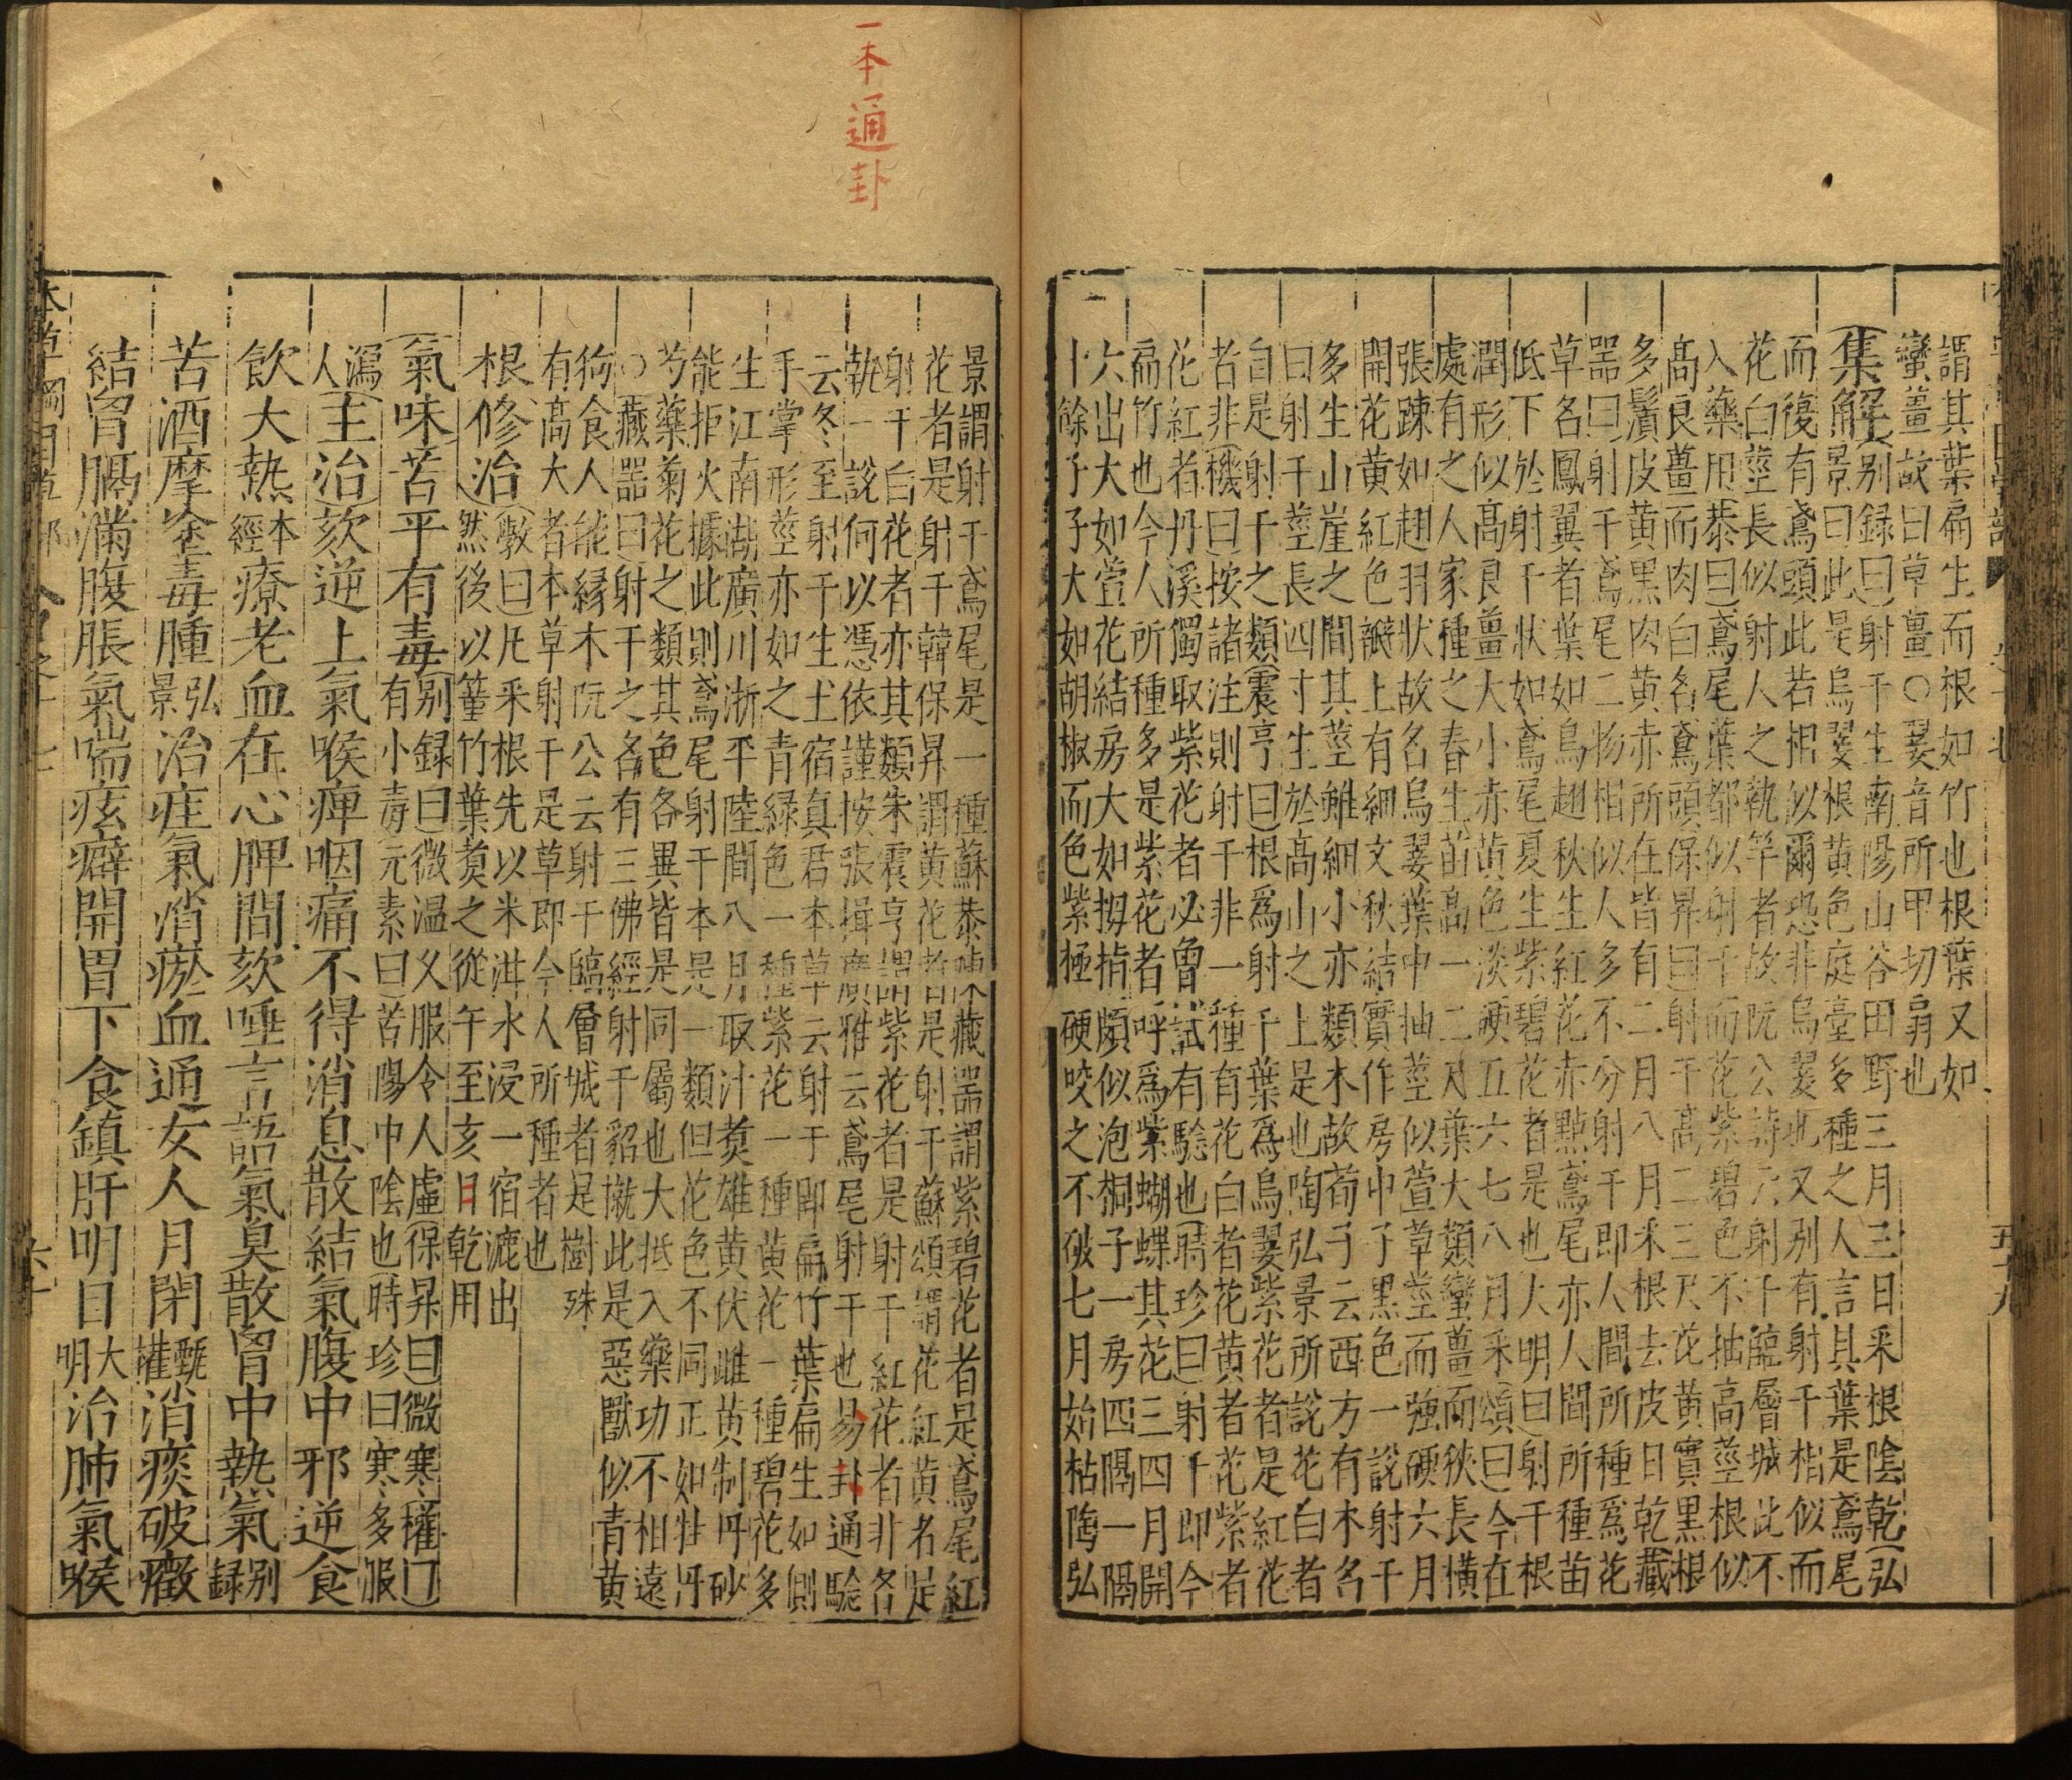 謂其葉扁生而根如竹也根葉又如
蠻薑故曰草薑○翣音所甲切扇也
集解別録曰射干生南陽山谷田野三月三日釆根陰乾弘
景曰此是烏翣根黄色庭臺多種之人言其葉是鳶尾
而復有鳶頭此若相似爾恐非烏翣也又别有射干相似而
花白莖長似射人之執竿者故阮公詩云射干臨層城此不
入藥用恭曰鳶尾葉都似射干而花紫碧色不抽高莖根似
髙良薑而肉白名鳶頭保昇曰射干髙二三尺花黄實黒根
多鬚皮黄黒肉黄赤所在皆有二月八月釆根去皮日乾藏
噐曰射干鳶尾二物相似人多不分射干即人間所種爲花
草名鳳翼者葉如鳥翅秋生紅花赤點鳶尾亦人間所種苗
低下於射干狀如鳶尾夏生紫碧花者是也大明曰射干根
潤形似髙良薑大小赤黄色淡硬五六七八月釆頌曰今在
處有之人家種之春生苗髙一二尺葉大類蠻薑而狹長橫
張踈如翅羽狀故名烏翣葉中抽莖似萱草莖而強硬六月
開花黄紅色瓣上有細文秋結實作房中子黒色一說射干
多生山崖之間其莖雖細小亦類木故荀子云西方有木名
曰射干莖長四寸生於髙山之上是也陶弘景所說花白者
自是射干之類震亨曰根爲射干葉爲烏翣紫花者是紅花
者非機曰按諸注則射干非一種有花白者花黄者花紫者
花紅者丹溪獨取紫花者必曾試有驗也時珍曰射干即今
扁竹也今人所種多是紫花者呼爲紫蝴蝶其花三四月開
六出大如萱花結房大如拇指頗似泡桐子一房四隔一隔
十餘子子大如胡椒而色紫極硬咬之不破七月始枯陶弘
一本通卦
景謂射干鳶尾是一種蘇恭陳藏噐謂紫碧花者是鳶尾紅
花者是射干韓保昇謂黄花者是射干蘇頌謂花紅黄者是
射干白花者亦其類朱震亨謂紫花者是射干紅花者非各
執一說何以憑依謹按張揖廣雅云鳶尾射干也易卦通驗
云冬至射干生土宿真君本草云射干即扁竹葉扁生如側
手掌形莖亦如之青緑色一種紫花一種黄花一種碧花多
生江南湖廣川浙平陸間八月取汁煑雄黄伏雌黄制丹砂
能拒火據此則鳶尾射干本是一類但花色不同正如牡丹
芍藥菊花之類其色各異皆是同屬也大抵入藥功不相遠
○藏噐曰射干之名有三佛經射干貂㺠此是惡獸似青黄
狗食人能緣木阮公云射干臨層城者是樹殊
有髙大者本草射干是草即今人所種者也
根修治斆曰凡釆根先以米泔水浸一宿漉出
然後以䈽竹葉煑之從午至亥日乾用
氣味苦平有毒别録曰微温乆服令人虚保昇曰微寒權曰
有小毒元素曰苦陽中陰也時珍曰寒多服
瀉人主治欬逆上氣喉痺咽痛不得消息散結氣腹中邪逆食
飲大熱本經療老血在心脾間欬唾言語氣臭散胷中熱氣别録
苦酒摩塗毒腫弘景治疰氣消瘀血通女人月閉甄權消痰破癥
結胷膈滿腹脹氣喘痃癖開胃下食鎮肝明目大明治肺氣喉